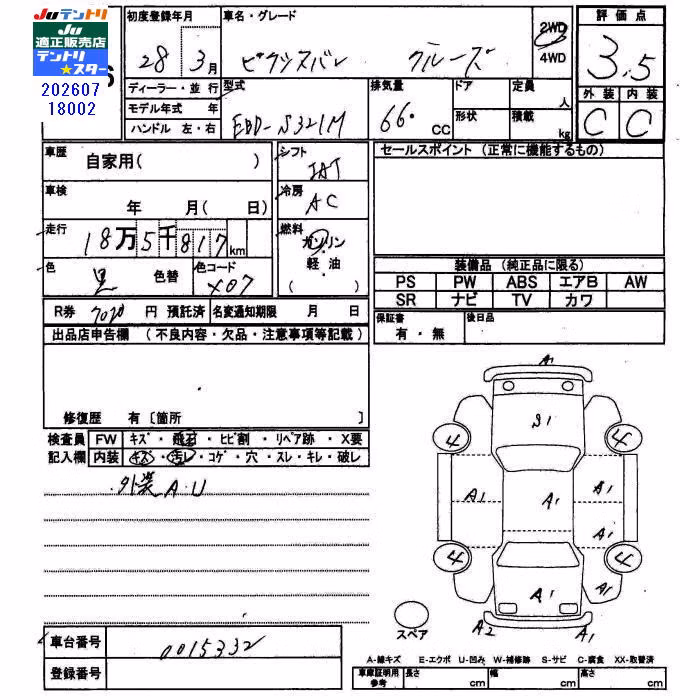 Juテントリ
Ju
適正販売店
テントリ
★スター
202607
18002
初度登録年月
28 3月
車名・グレード
クルーズ
2WD
4WD
評価点
3.5
外装 内装
C C
ディーラー・並行
モデル年式 年
ハンドル 左・右
型式
EBD-S321M
排気量
66・ CC
ドア
形状
定員
人
積載
kg
車歴
自家用( )
シフト
車検
年 月( 日)
冷房
AC
走行
18万5千817km
燃料
ガソリン
・
軽・油
( )
色
黒 色替
色コード
X07
R券 7020 円 預託済 名変通知期限 月 日
出品店申告欄 (不良内容・欠品・注意事項等記載)
修復歴 有〔箇所 〕
セールスポイント (正常に機能するもの)
装備品 (純正品に限る)
PS PW ABS エアB AW
SR ナビ TV カワ
保証書
有・無
後日品
検査員
記入欄
FW キズ・飛石・ヒビ割・リペア跡・X要
内装 キズ・汚レ・コゲ・穴・スレ・キレ・破レ
外装 A.U
A1
S1
4 4
A1 A1 A1
A1
4 4
A1 A1
A2 A1
スペア
車台番号 0015332
登録番号
A-線キズ E-エクボ U-凹み W-補修跡 S-サビ C-腐食 XX-取替済
車庫証明用
参考
長さ cm
幅 cm
高さ cm